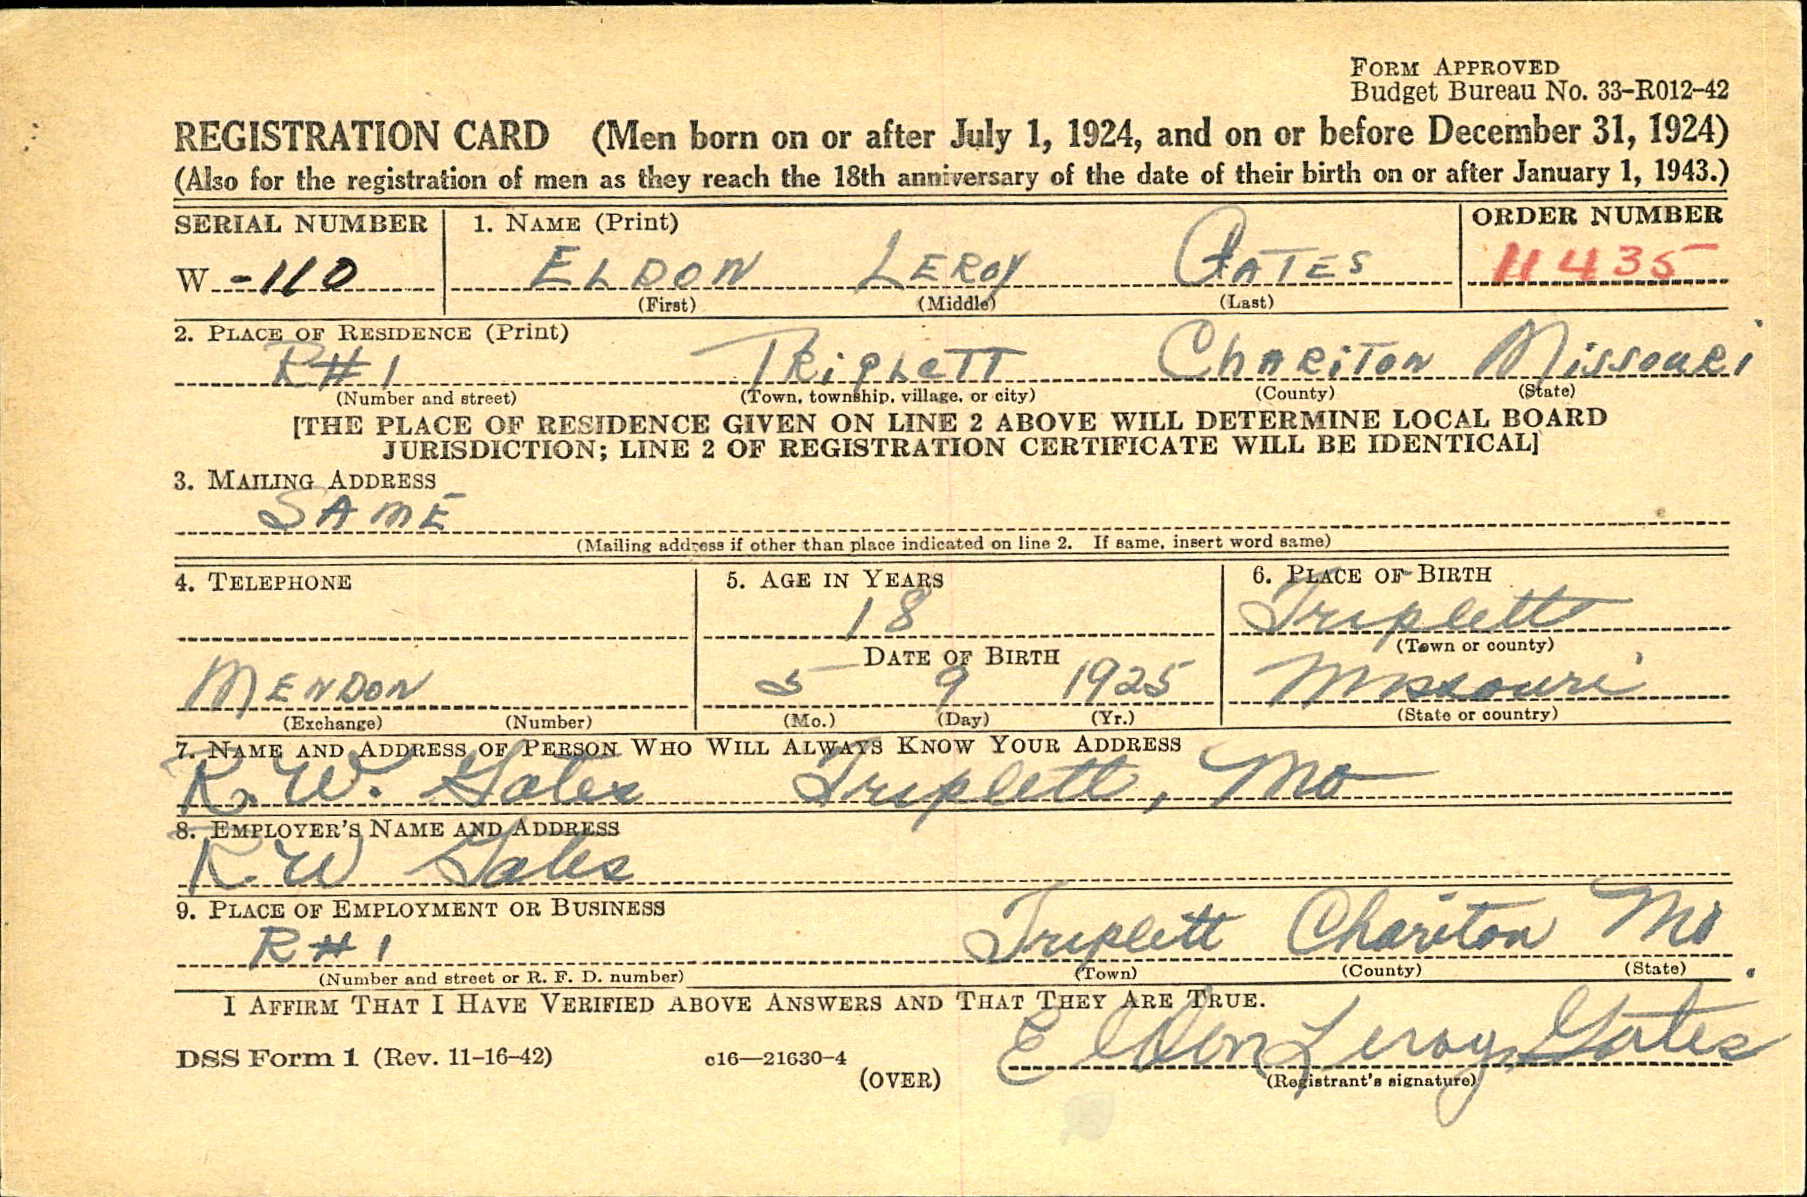 FORM APPROVED
Budget Bureau No. 33-R012-42
REGISTRATION CARD (Men born on or after July 1, 1924, and on or before December 31, 1924)
(Also for the registration of men as they reach the 18th anniversary of the date of their birth on or after January 1, 1943.)
SERIAL NUMBER 1. NAME (Print) ORDER NUMBER
W -110 ELDON LEROY GATES 11435
(First) (Middle) (Last)
2. PLACE OF RESIDENCE (Print)
R#1 TRiPLETT ChARiTON Missouri
(Number and street) (Town, township, village, or city) (County) (State)
[THE PLACE OF RESIDENCE GIVEN ON LINE 2 ABOVE WILL DETERMINE LOCAL BOARD
JURISDICTION; LINE 2 OF REGISTRATION CERTIFICATE WILL BE IDENTICAL]
3. MAILING ADDRESS
SAME
(Mailing address if other than place indicated on line 2. If same, insert word same)
4. TELEPHONE 5. AGE IN YEARS 6. PLACE OF BIRTH
18 Triplett
(Town or county)
DATE OF BIRTH
MENDON 5 9 1925 Missouri
(Exchange) (Number) (Mo.) (Day) (Yr.) (State or country)
7. NAME AND ADDRESS OF PERSON WHO WILL ALWAYS KNOW YOUR ADDRESS
R. W. Gates Triplett, Mo
8. EMPLOYER'S NAME AND ADDRESS
R. W Gates
9. PLACE OF EMPLOYMENT OR BUSINESS
R#1 Triplett Chariton Mo
(Number and street or R. F. D. number) (Town) (County) (State)
I AFFIRM THAT I HAVE VERIFIED ABOVE ANSWERS AND THAT THEY ARE TRUE.
Eldon Leroy Gates
DSS Form 1 (Rev. 11-16-42) c16—21630-4 (OVER) (Registrant's signature)